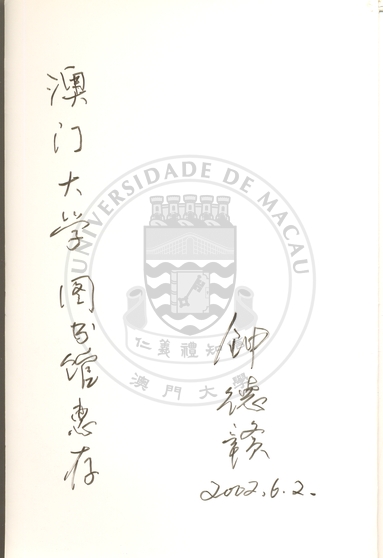 澳门大学图书馆惠存
钟德赣
2002.6.2.
UNIVERSIDADE DE MACAU
仁義禮知信
澳門大學